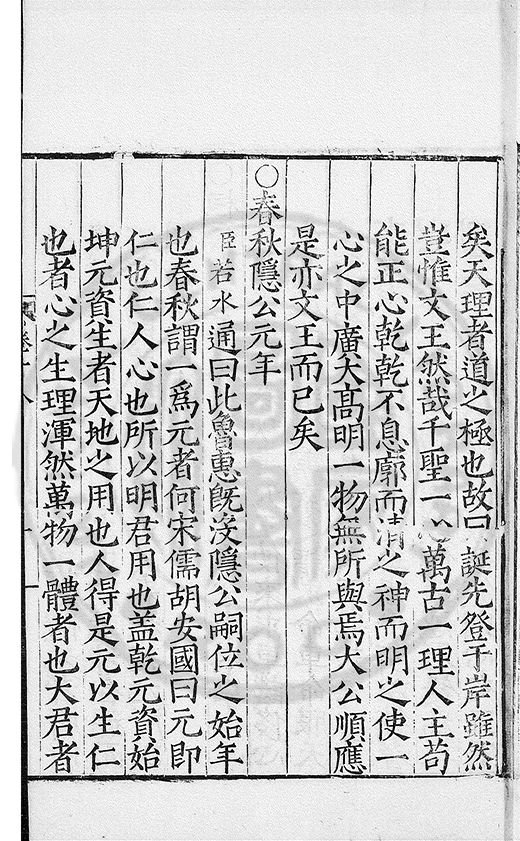 矣天理者道之極也故曰誕先登于岸雖然
豈惟文王然哉千聖一心萬古一理人主苟
能正心乾乾不息廓而清之神而明之使一
心之中廣大高明一物無所與焉大公順應
是亦文王而已矣
○春秋隱公元年
臣若水通曰此魯惠旣沒隱公嗣位之始年
也春秋謂一爲元者何宋儒胡安國曰元即
仁也仁人心也所以明君用也盖乾元資始
坤元資生者天地之用也人得是元以生仁
也者心之生理渾然萬物一體者也大君者
卷十八